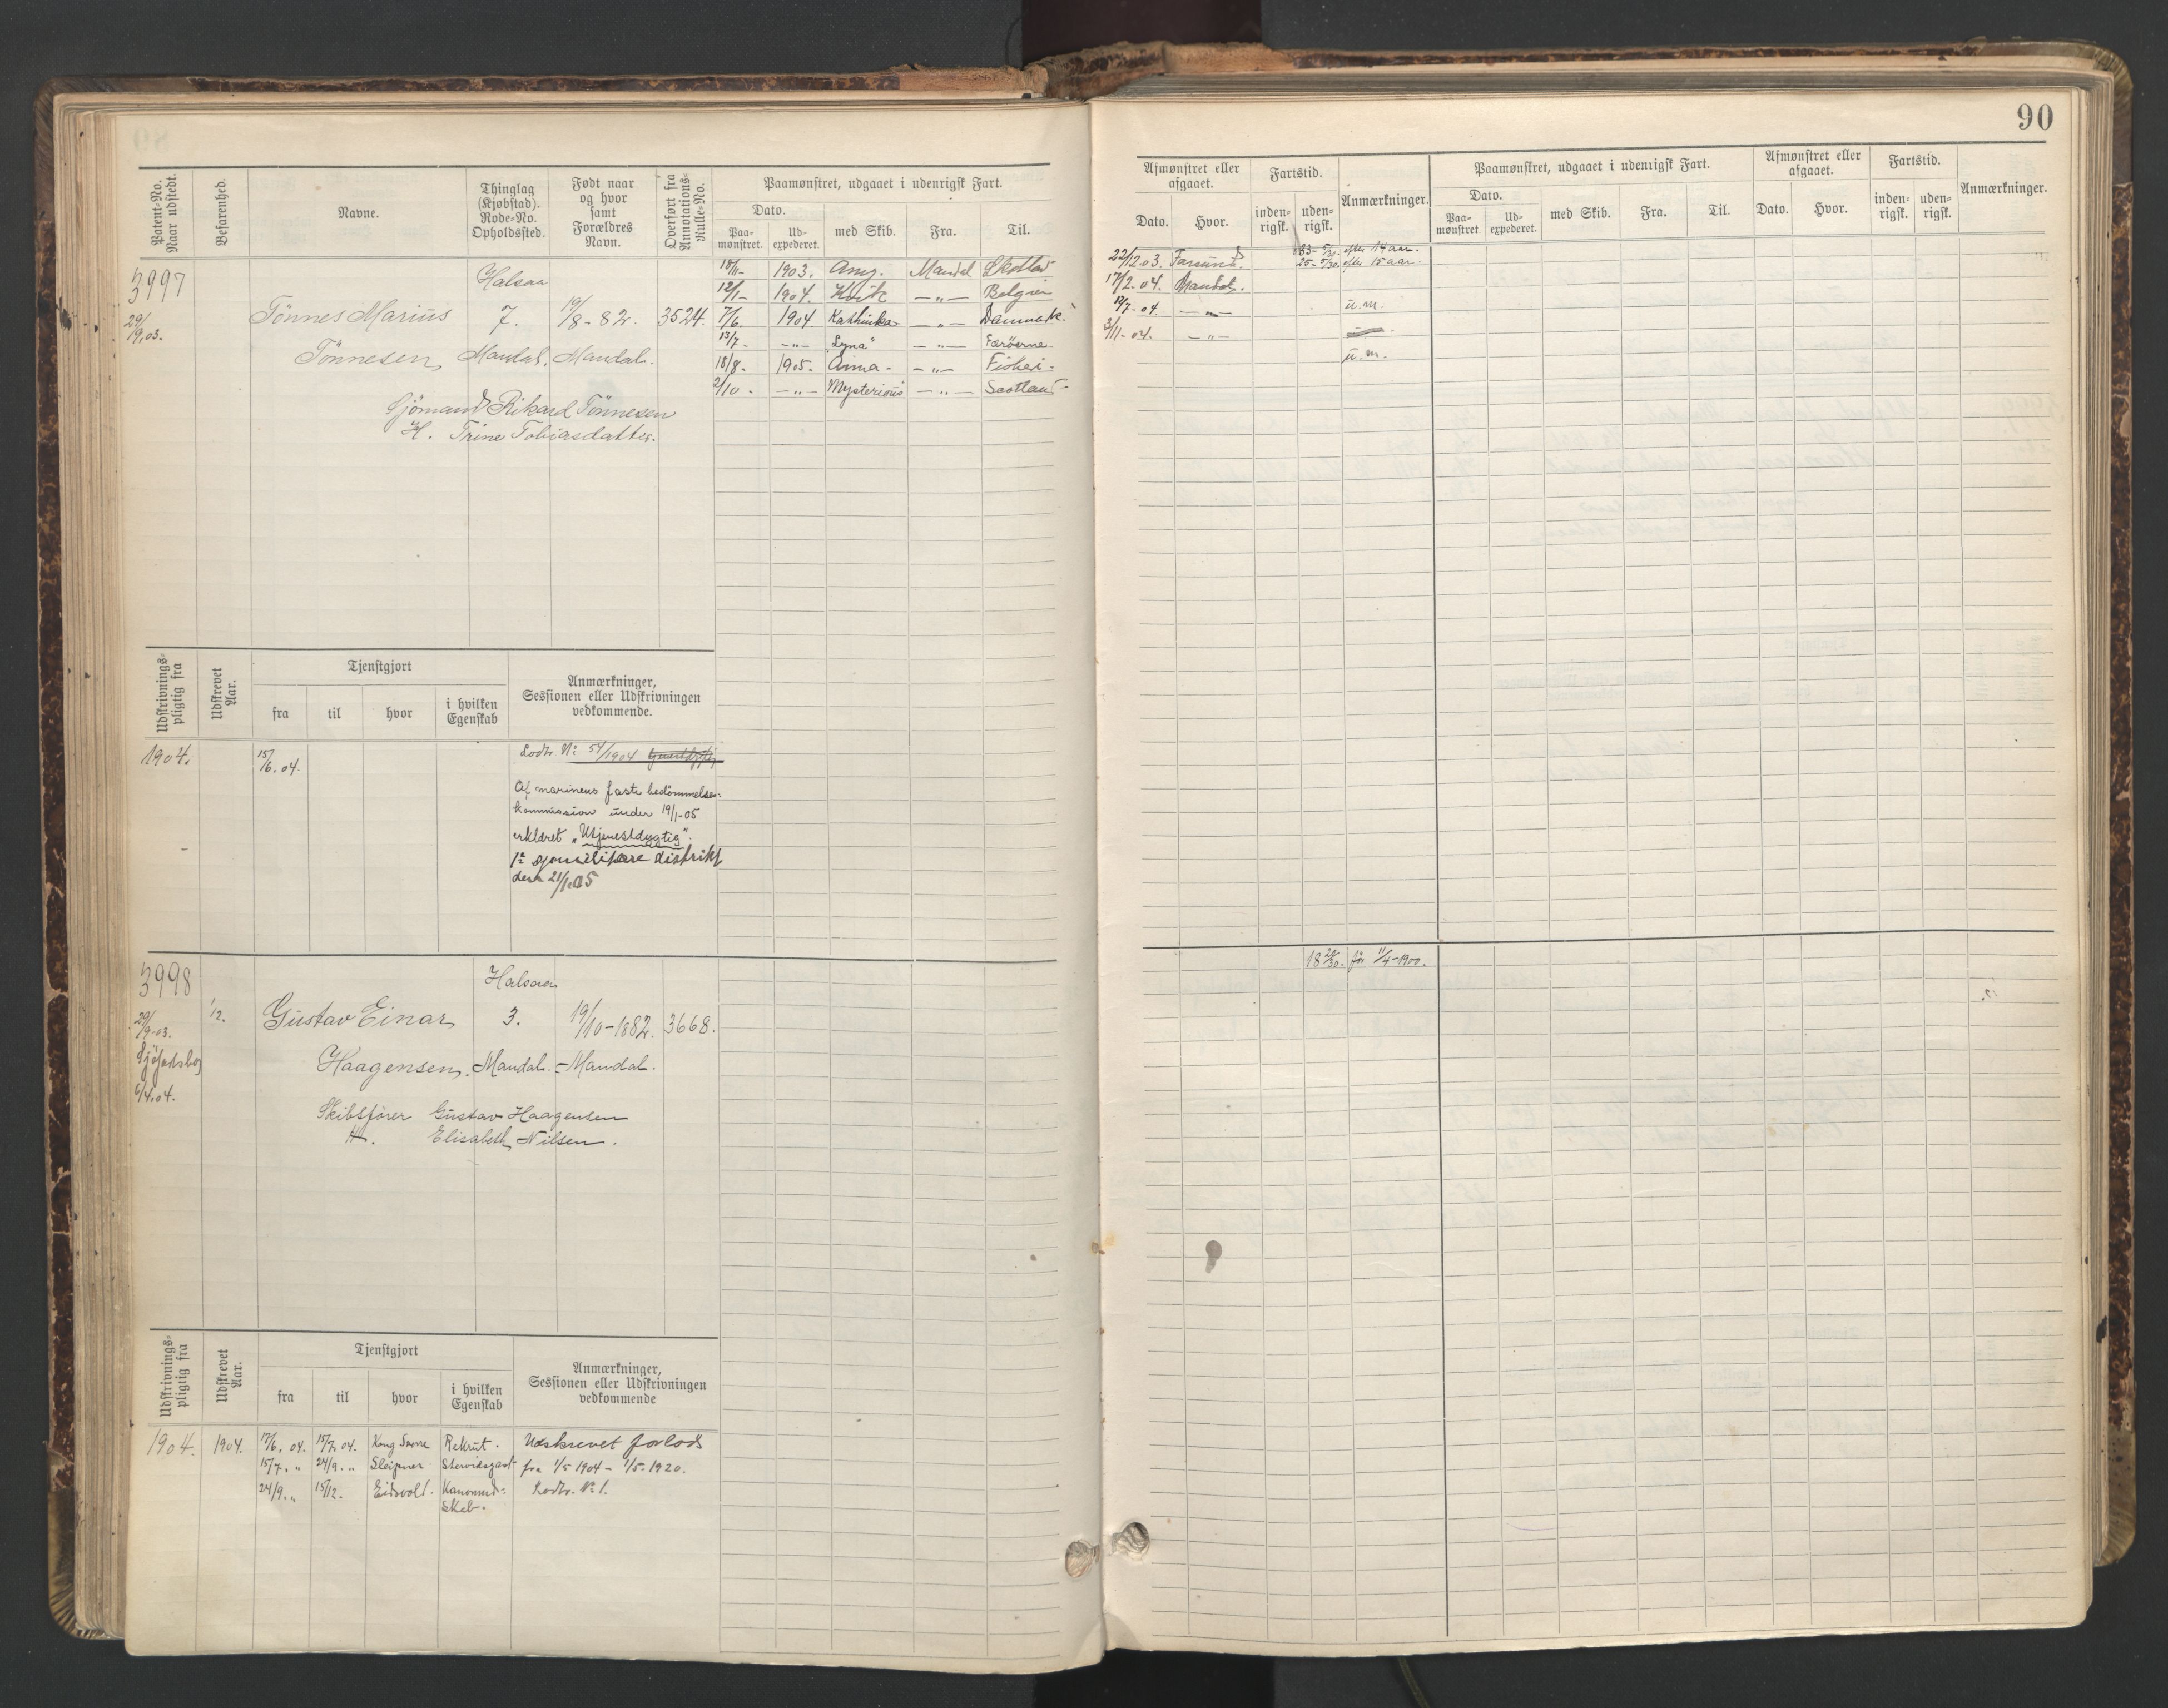 90
Patent-No. Naar udstedt.
Befarenhed.
Navne.
Thinglag (Kjøbstad). Rode-No. Opholdssted.
Født naar og hvor samt Forældres Navn.
Overført fra Annotations-Rulle-No.
Paamønstret, udgaaet i udenrigsk Fart.
Dato.
Paa-mønstret.
Ud-expederet.
med Skib.
Fra.
Til.
Afmønstret eller afgaaet.
Dato.
Hvor.
Fartstid.
inden-rigsk.
uden-rigsk.
Anmærkninger.
Paamønstret, udgaaet i udenrigsk Fart.
Dato.
Paa-mønstret
Ud-expederet.
med Skib.
Fra.
Til.
Afmønstret eller afgaaet.
Dato.
Hvor.
Fartstid.
inden-rigsk.
uden-rigsk.
Anmærkninger.
3997
29/9.03.
Halsaa
Tönnes Marius 7. 19/8-82. 3524.
Tönnesen, Mandal. Mandal.
Sjömand Rikard Tönnesen
H. Trine Tobiasdatter.
18/11- 1903. Mandal
12/1- 1904. —„— Belgien
7/6. 1904 Kathinka —„— Danmark
13/7- —„— "Lyna" —„— Færöerne
18/8- 1905. Anna - —„— Fiskeri.
2/10. —„— Mysterious —„— Scotland
22/12.03. Farsund. efter 14 aar.
25- efter 15 aar.
17/2-04. Mandal.
—„— u.m.
3/11-04. —„—
u.m.
Udskrivnings-pligtig fra
Udskrevet Aar.
Tjenstgjort
fra
til
hvor
i hvilken Egenskab
Anmærkninger, Sessionen eller Udskrivningen vedkommende.
1904.
15/6.04.
Lodtr. No 54/1904
Af marinens faste bedömmelses-
kommission under 19/1-05
erklæret „Utjenestdygtig".
1ste sjömilitære distrikt
den 21/1.05
3998
29/9-03.
1/12.
6/4.04.
Halsaa
Gustav Einar 3. 19/10-1882. 3668.
Haagensen, Mandal. - Mandal.
Skibsfører Gustav Haagensen
H. Elisabeth Nilsen.
för 11/4-1900.
Udskrivnings-pligtig fra
Udskrevet Aar.
Tjenstgjort
fra
til
hvor
i hvilken Egenskab
Anmærkninger, Sessionen eller Udskrivningen vedkommende
1904. 1904. 17/6.04. 15/7.04. Kong Sverre Rekrut. Udskrevet
15/7. „ 24/9. „ Sleipner fra 1/5 1904 - 1/5.1920.
24/9. „ 15/12. Eidsvold. Lodtr. No 1.